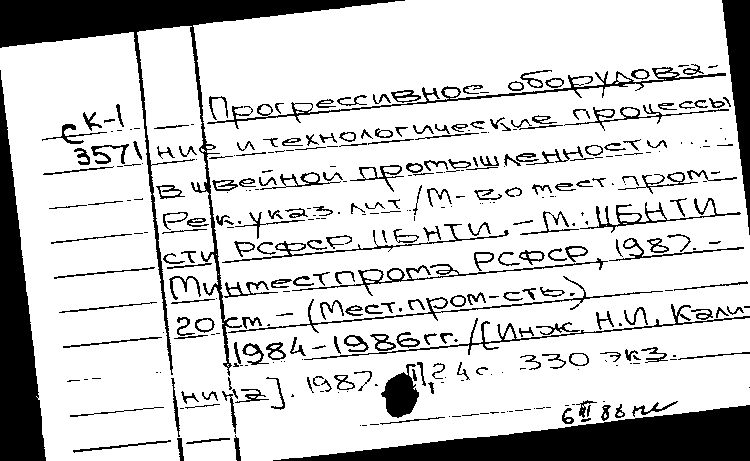 К-1
С
3571
Прогрессивное оборудова-
ние и технологические процессы
в швейной промышленности ....:
Рек. указ. лит/М-во мест. пром-
сти РСФСР. ЦБНТИ. – М.: ЦБНТИ
Минместпрома РСФСР, 1987. –
20 см. – (Мест. пром-сть.)
1984–1986 гг. /[Инж. Н.И. Кали-
нина]. 1987. II, 24 с. 330 экз.
6 III 88